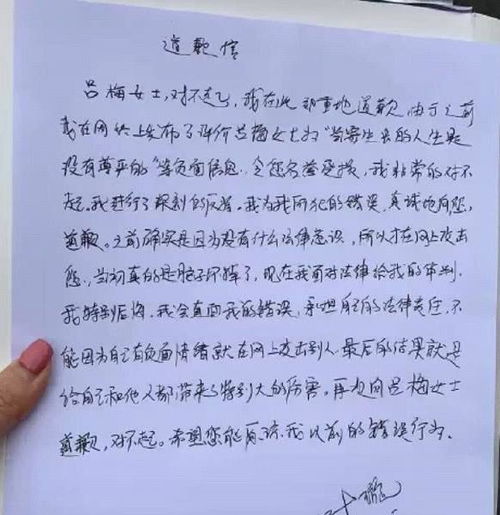 道歉信
吕梅女士，对不起，我在此郑重地道歉，由于之前
我在网络上发布了评价吕梅女士为“当寄生虫的人生是
没有尊严的”等负面信息，令您名誉受损，我非常的对不
起。我进行了深刻的反省，我为我所犯的错误，真诚地向您
道歉。之前确实是因为没有什么法律意识，所以才在网上攻击
您，当初真的是脑子坏掉了，现在我面对法律给我的审判，
我特别后悔，我会直面我的错误，承担自己的法律责任，不
能因为自己有负面情绪就在网上攻击别人，最后的结果就是
给自己和他人都带来了特别大的伤害。再次向吕梅女士
道歉，对不起。希望您能原谅我以前的错误行为。